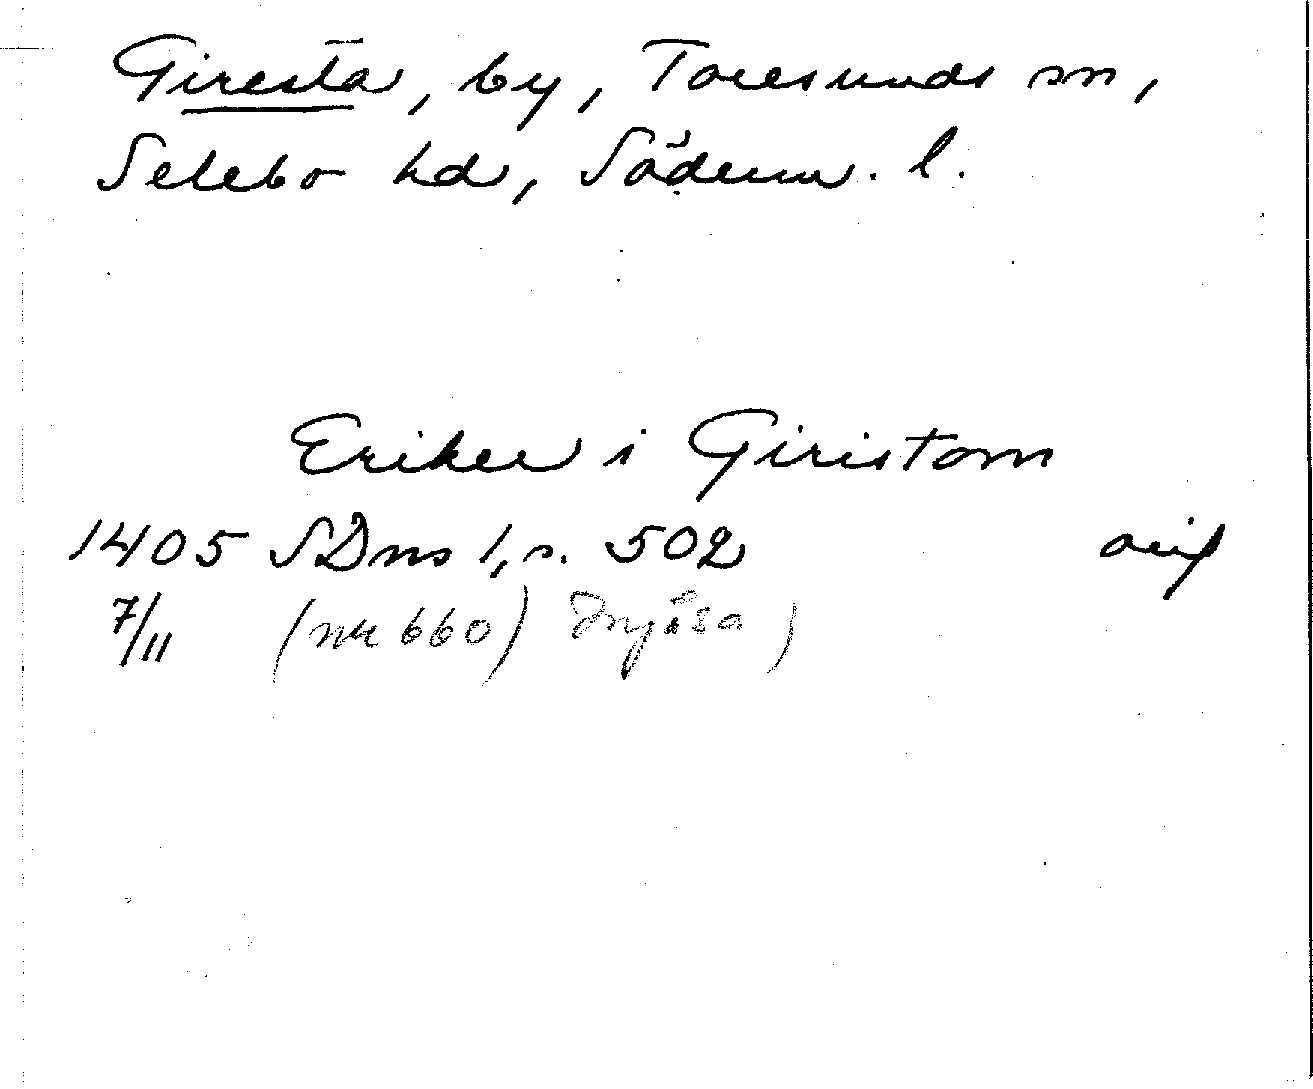 Giresta, by, Toresunds sn,
Selebo hd, Söderm. l.
Eriker i Giristom
1405 SDns 1, s. 502 avskr
7/11 (nr 660) Mjösa)